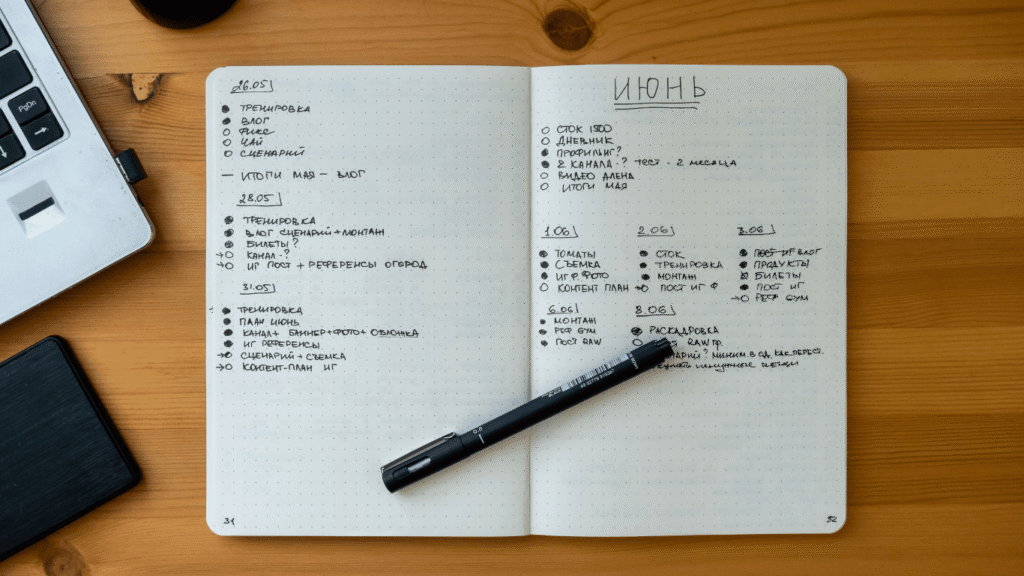 PgDn
26.05
● ТРЕНИРОВКА
● ВЛОГ
○ ФИКС
○ ЧАЙ
○ СЦЕНАРИЙ
— ИТОГИ МАЯ — ВЛОГ
28.05
● ТРЕНИРОВКА
● ВЛОГ СЦЕНАРИЙ + МОНТАЖ
● БИЛЕТЫ?
→○ КАНАЛ-?
→○ ИГ ПОСТ + РЕФЕРЕНСЫ ОГОРОД
31.05
● ТРЕНИРОВКА
● ПЛАН ИЮНЬ
● КАНАЛ + БАННЕР + ФОТО + ОБЛОЖКА
● ИГ РЕФЕРЕНСЫ
→○ СЦЕНАРИЙ + СЪЕМКА
→○ КОНТЕНТ-ПЛАН ИГ
31
ИЮНЬ
○ СТОК 1500
○ ДНЕВНИК
● ПРОФИЛИНГ?
● 2 КАНАЛА-? ТЕСТ - 2 МЕСЯЦА
○ ВИДЕО АЛЕНА
○ ИТОГИ МАЯ
1.06
● ТОМАТЫ
● СЪЕМКА
● ИГ Ф ФОТО
○ КОНТЕНТ ПЛАН
2.06
● СТОК
● ТРЕНИРОВКА
● МОНТАЖ
→○ ПОСТ ИГ Ф
3.06
● ПОСТ ИГ ВЛОГ
● ПРОДУКТЫ
БИЛЕТЫ
● ПОСТ ИГ
→○ РЕФ GYM
6.06
● МОНТАЖ
● РЕФ GYM
● ПОСТ RAW
8.06
● РАСКАДРОВКА
○ RAW
МИНИМ. В ОД. КАК ПЕРЕСТ.
32